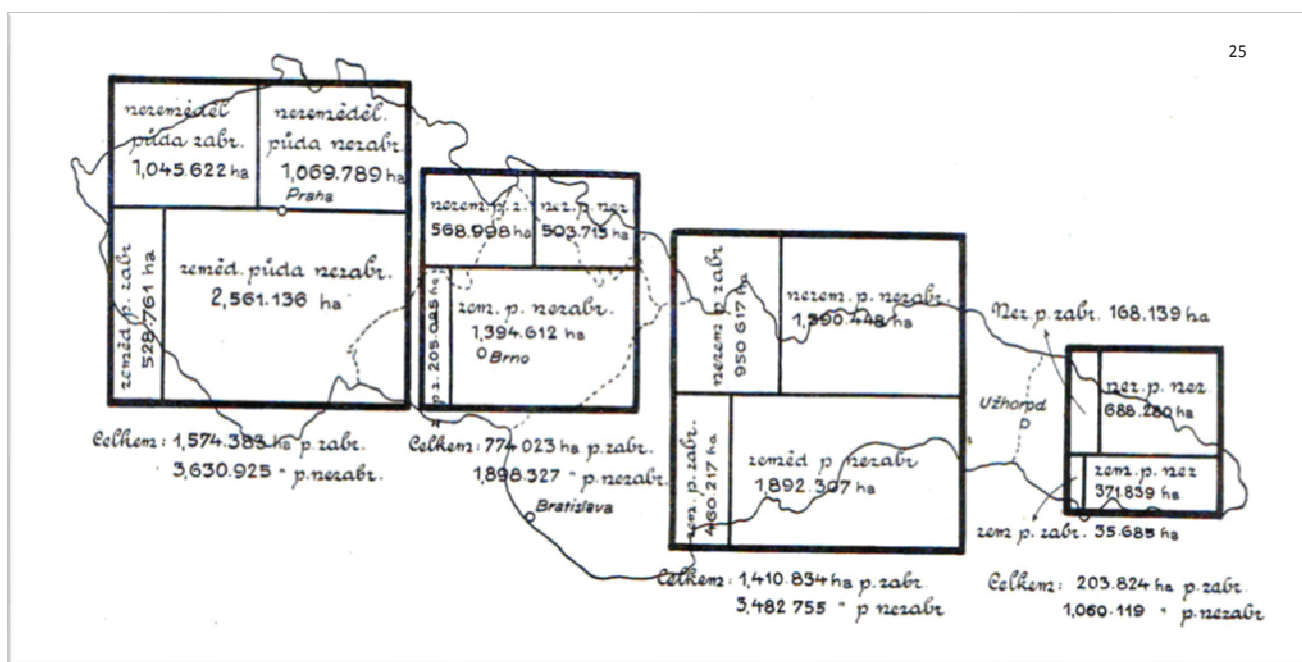 25
nezeměděl
půda zabr.
1,045.622 ha
nezeměděl.
půda nezabr.
1,069.789 ha
Praha
zeměd. p. zabr
528.761 ha
zeměd. půda nezabr.
2,561.136 ha
Celkem: 1,574.383 ha p. zabr.
3,630.925 " p. nezabr.
nezem. p. z.
568.998 ha
nez. p. nez
503.715 ha
p. z. 205.085 ha
zem. p. nezabr.
1,394.612 ha
Brno
Celkem: 774 023 ha p. zabr.
1,898.327 " p. nezabr.
Bratislava
nezem p. zabr
950 617 ha
nezem. p. nezabr.
1,590.448 ha
zem. p. zabr.
460.217 ha
zeměd p nezabr
1,892.307 ha
Celkem: 1,410.834 ha p. zabr.
3,482 755 " p nezabr
Nez p. zabr. 168.139 ha
Užhorod
nez. p. nez.
688.280 ha
zem. p. nez
371.839 ha
zem p. zabr. 35.685 ha
Celkem: 203.824 ha p. zabr.
1,060.119 " p. nezabr